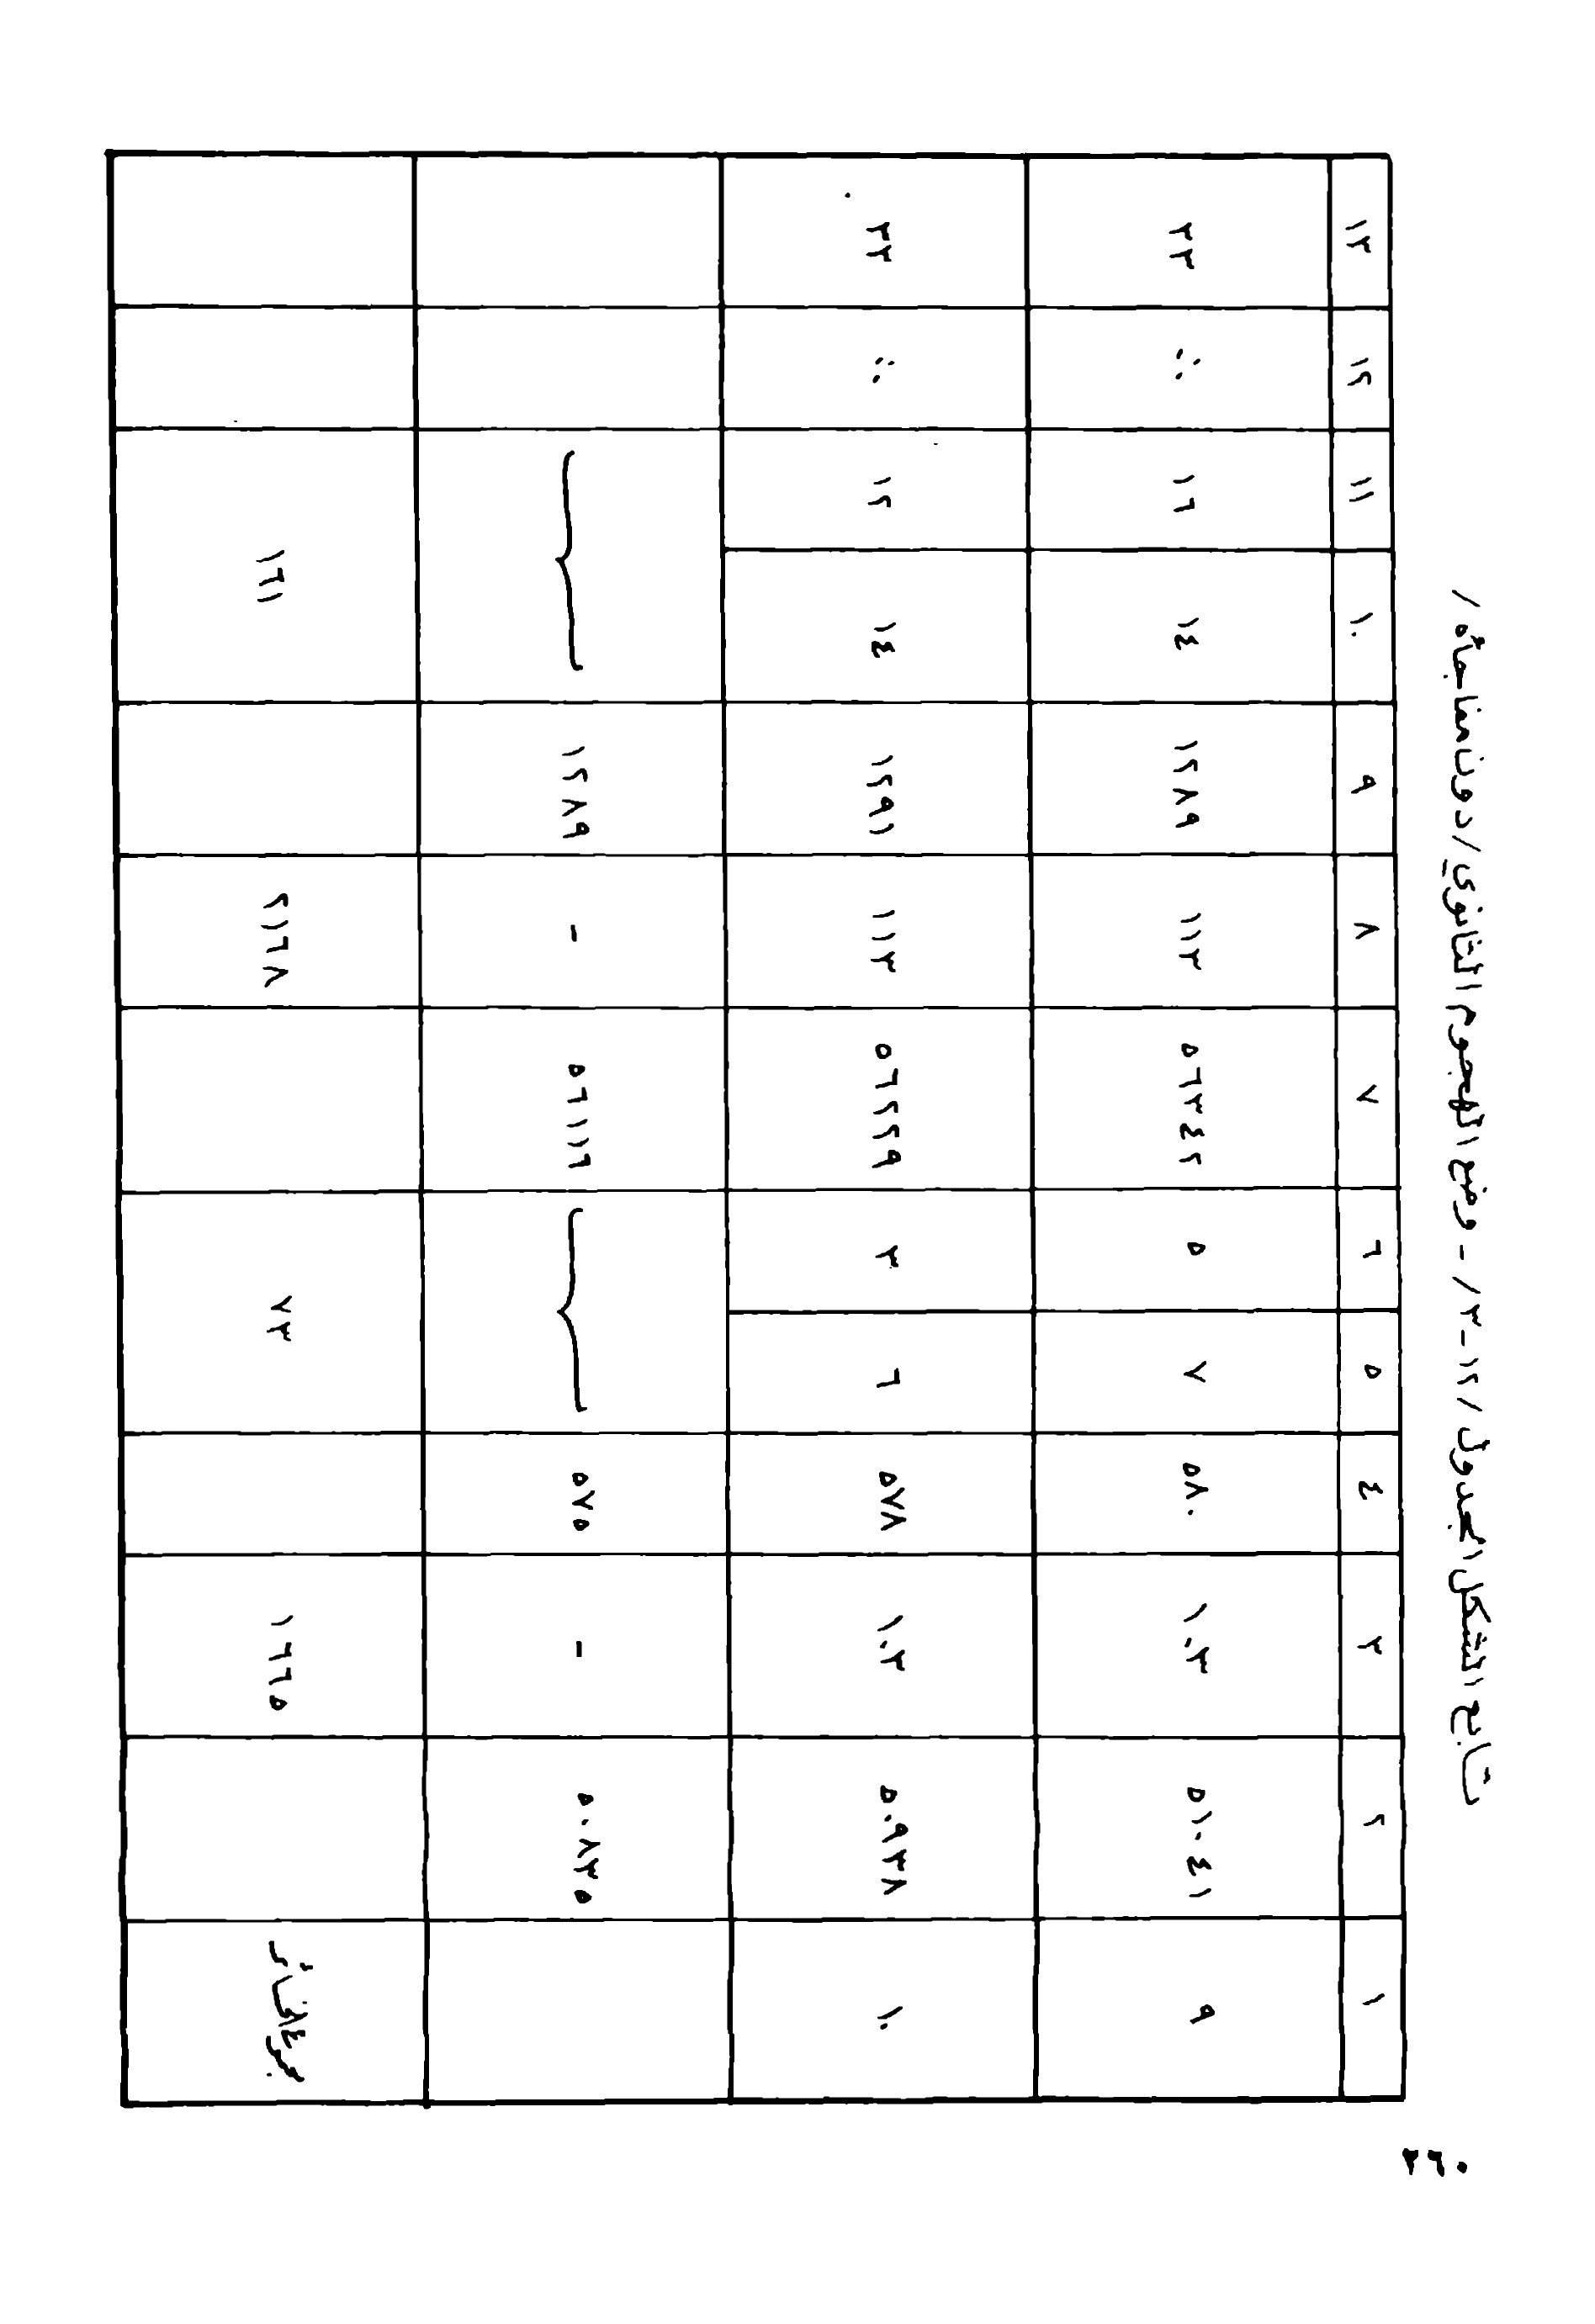 تابع الشكل الجدول /١٢-٣/ - وضع الهجوم الثانوي / دون مفاجأة /
١ ٢ ٣ ٤ ٥ ٦ ٧ ٨ ٩ ١٠ ١١ ١٢ ١٣
٩ ٥١٠٤١ ١٠٣ ٥٨٠ ٧ ٥ ٥٦٣٤٢ ١١٣ ١٢٨٩ ١٤ ١٦ ∴ ٣٣
١٠ ٥٠٩٣٨ ١٠٣ ٥٧٨ ٦ ٣ ٥٦٢٢٩ ١١٣ ١٢٩١ ١٤ ١٢ ∴ ٣٣
٥٠٨٣٥ - ٥٧٥ ٥٦١١٦ - ١٢٨٩
١٦٦٥ ٧٣ ٢١٦٨ ١٦١
٢٦٠